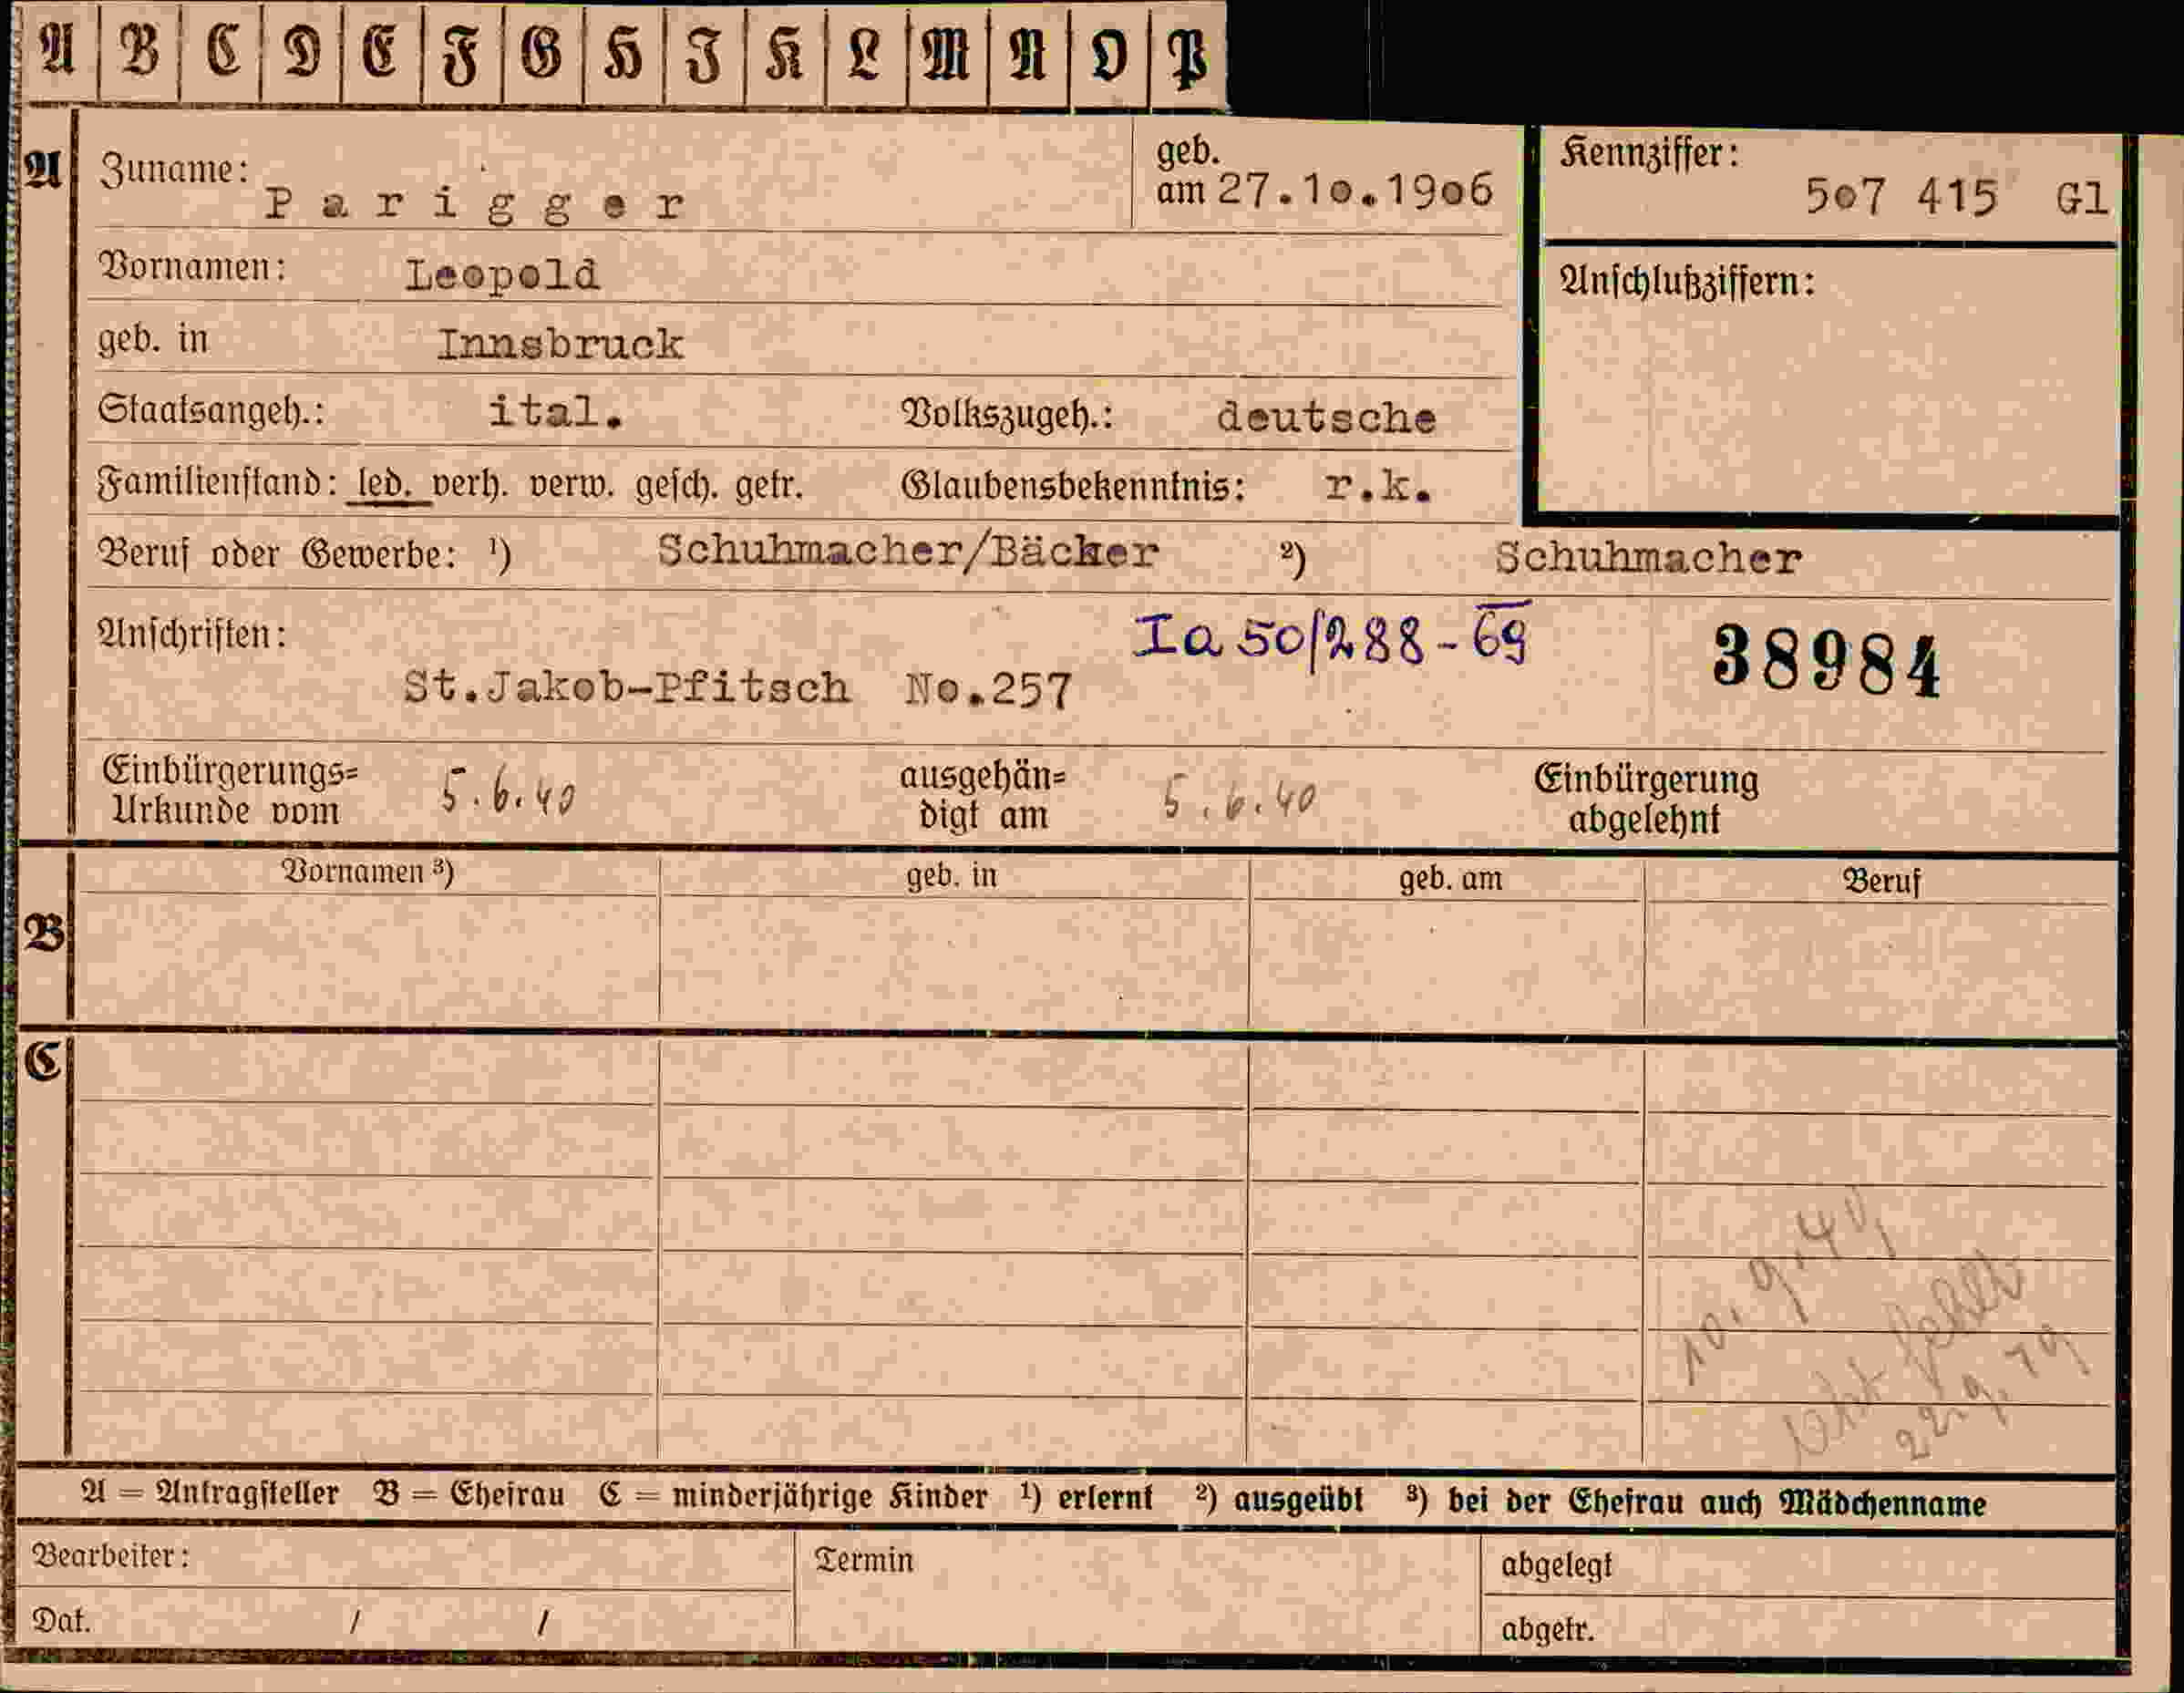 A B C D E F G H I K L M N O P
A Zuname: Parigger geb. am 27.10.1906 Kennziffer: 507 415 Gl
Vornamen: Leopold Anschlußziffern:
geb. in Innsbruck
Staatsangeh.: ital. Volkszugeh.: deutsche
Familienstand: led. verh. verw. gesch. getr. Glaubensbekenntnis: r.k.
Beruf oder Gewerbe: ¹) Schuhmacher/Bäcker ²) Schuhmacher
Anschriften: Ia 50/288-69 38984
St.Jakob-Pfitsch No.257
Einbürgerungs= ausgehän= Einbürgerung
Urkunde vom 5.6.40 digt am 5.6.40 abgelehnt
Vornamen ³) geb. in geb. am Beruf
B
C
10.9.40
fehlt
22.9.
A = Antragsteller B = Ehefrau C = minderjährige Kinder ¹) erlernt ²) ausgeübt ³) bei der Ehefrau auch Mädchenname
Bearbeiter: Termin abgelegt
Dat. / / abgetr.